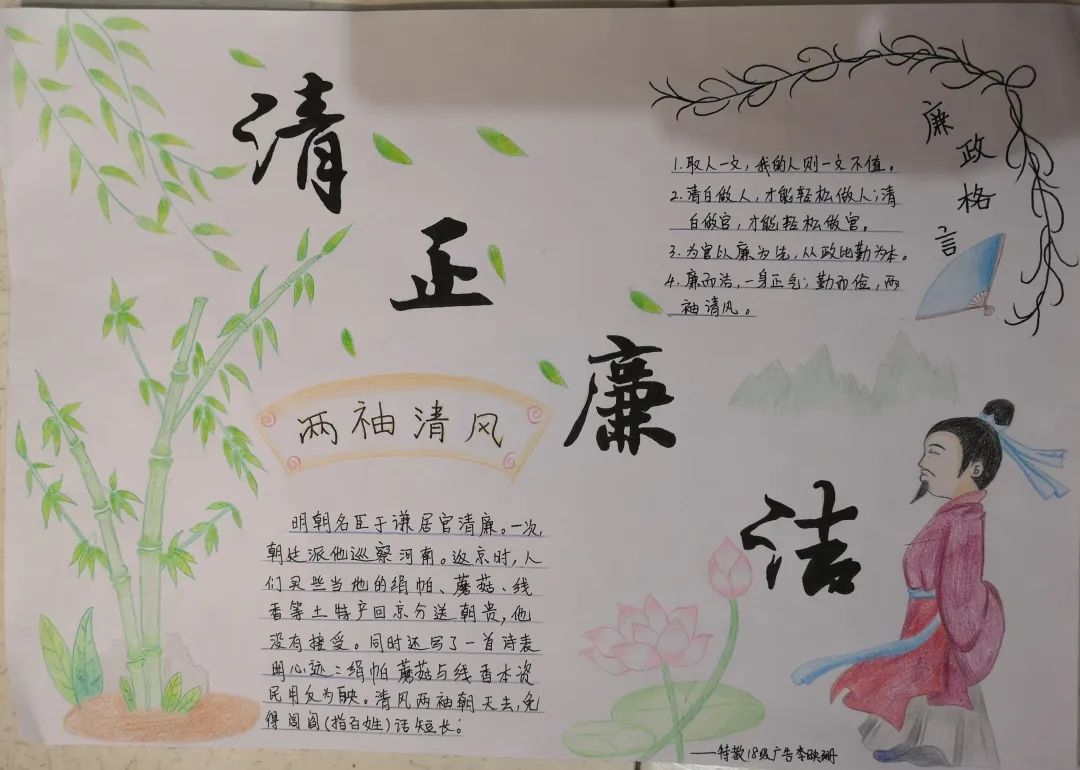 清正廉洁
廉政格言
1.取人一文，我的人则一文不值。
2.清白做人，才能轻松做人；清
白做官，才能轻松做官。
3.为官以廉为先，从政比勤为本。
4.廉而洁，一身正气；勤而俭，两
袖清风。
两袖清风
明朝名臣于谦居官清廉。一次，
朝廷派他巡察河南。返京时，人
们买些当地的绢帕、蘑菇、线
香等土特产回京分送朝贵，他
没有接受。同时还写了一首诗表
明心迹：绢帕蘑菇与线香本资
民用反为殃。清风两袖朝天去，免
得闾阎(指百姓)话短长。
——特教18级广告李映珊